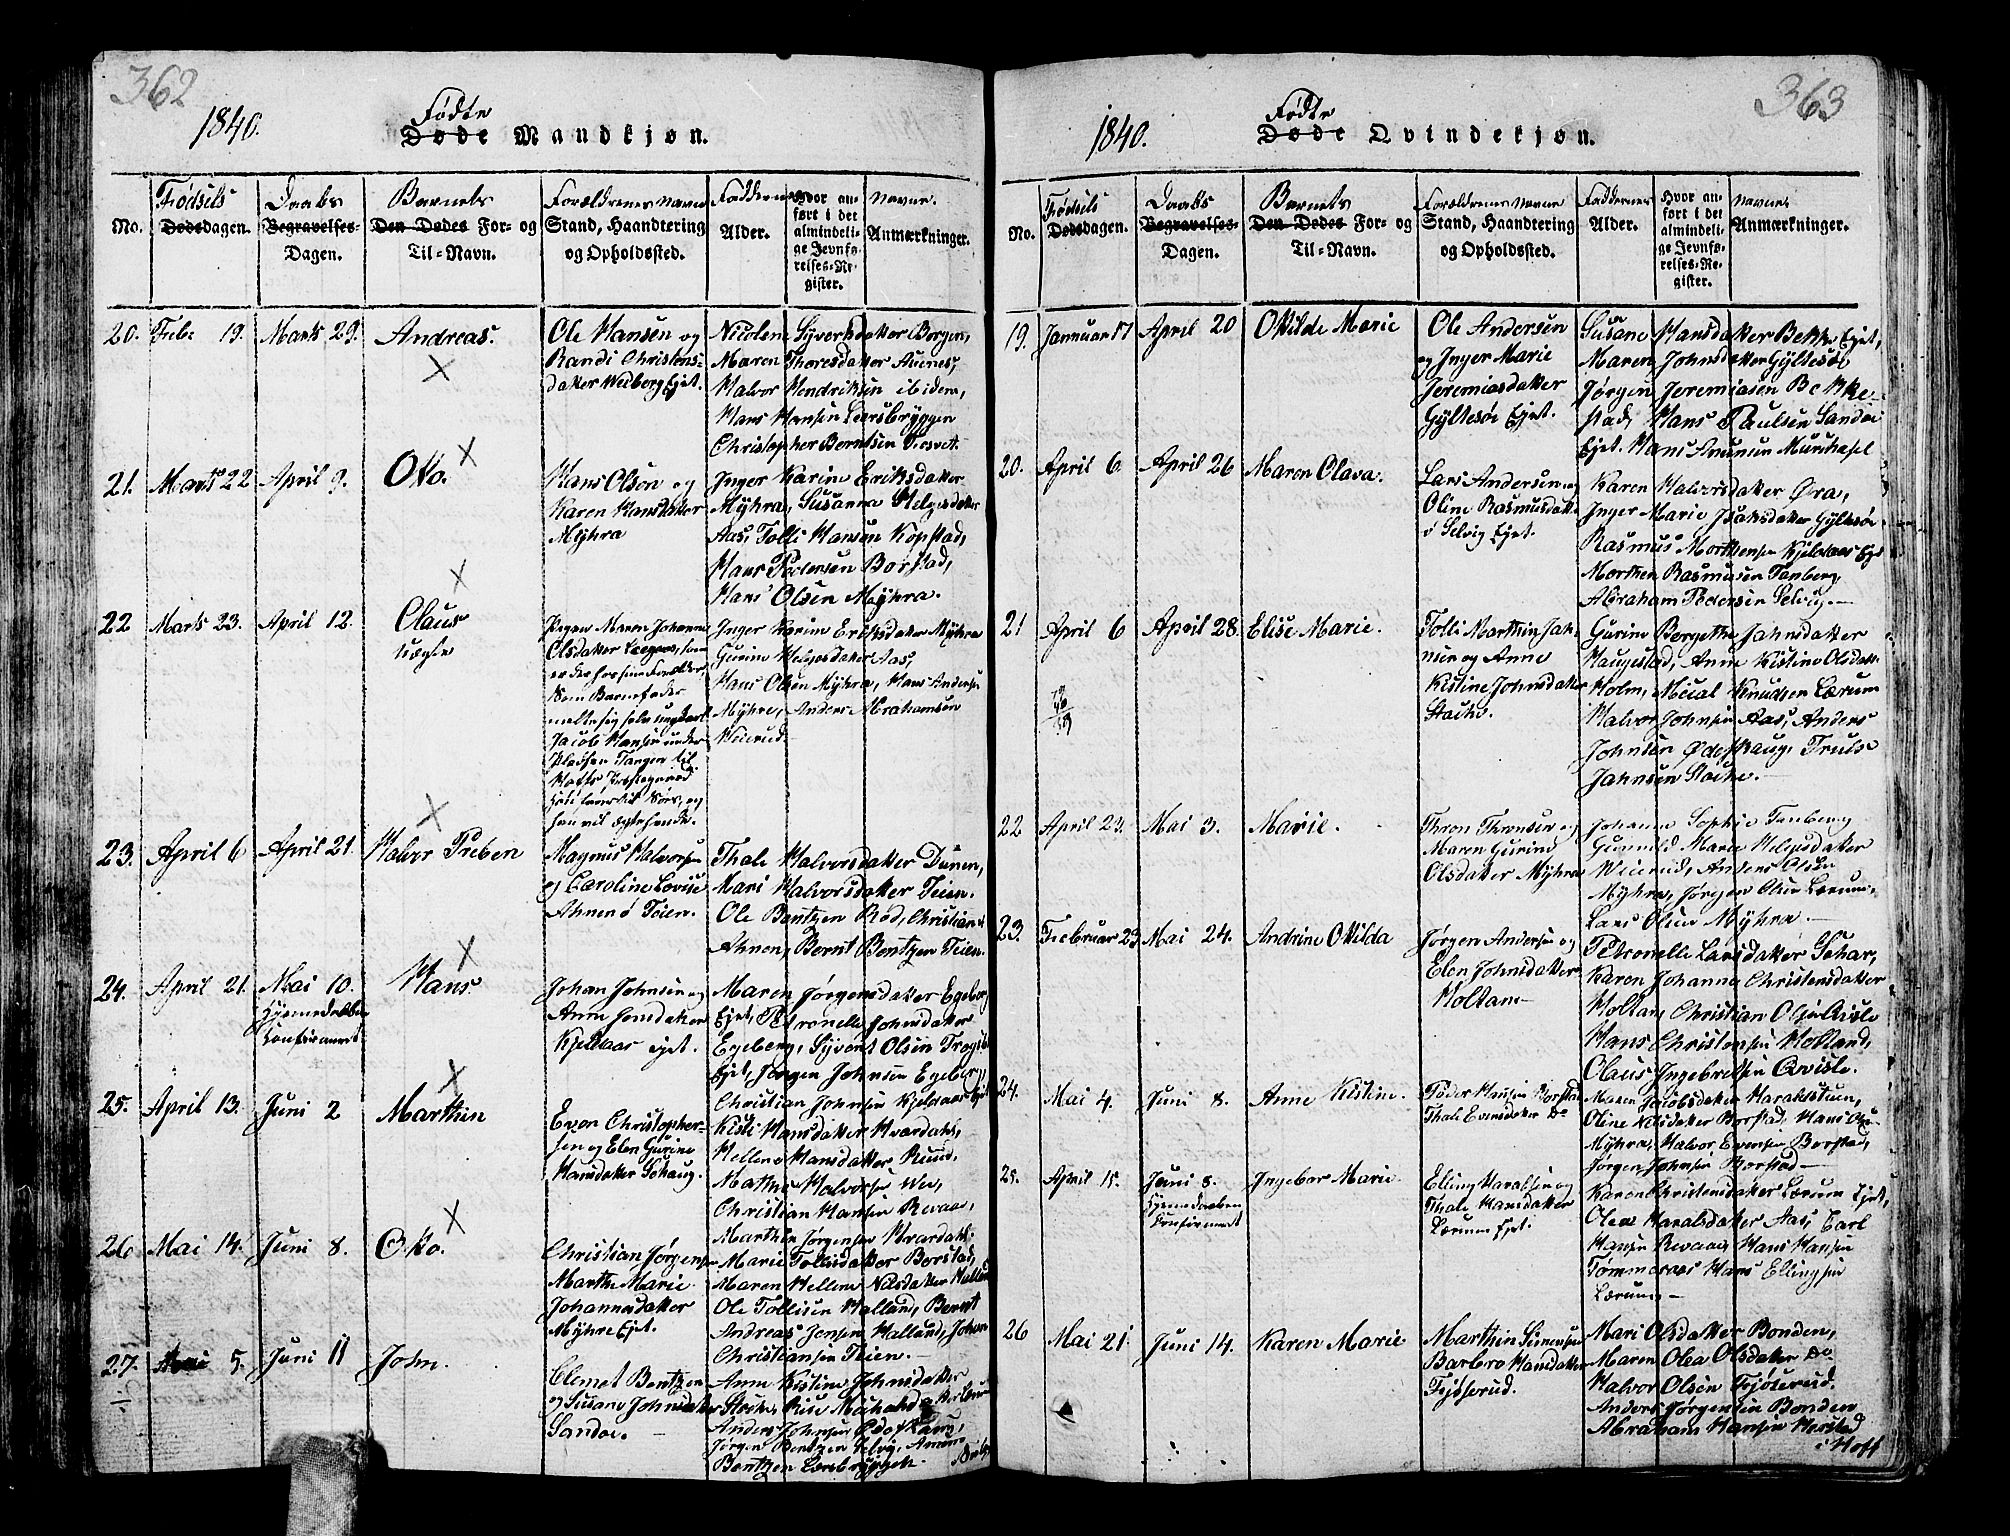 362
1840.
Fødte
Døde Mandkjøn.
No.
Fødsels
Dødsdagen.
Daabs
Begravelses-
Dagen.
Barnets
Den Dødes For- og
Til-Navn.
Forældrenes Navne
Stand, Haandtering
og Opholdssted.
Faddernes
Alder.
Hvor an-
ført i det
almindeli-
ge Jevnfø-
relses-Re-
gister.
Navne.
Anmærkninger.
20. Febr 19. Marts 29. Andreas.
Ole Hansen og
Randi Christens-
datter Wiborg Ejet.
Nicoline Syvertsdatter Borgen,
Maren Thoresdatter Auenes,
Halvor Hendriksen ibidem,
Hans Hansen Lersbryggen
Christopher Berntsen
21. Marts 22 April 9. Otto.
Hans Olsen og
Karen Hansdatter
Myhra
Inger Karine Eriksdatter
Myhra, Susanna Helgesdatter
Aas, Tolli Hansen Kopstad,
Hans Pedersen Borstad,
Hans Olsen Myhra.
22 Marts 23. April 12. Claus
uægte
Pigen Maren Johanne
Olsdatter
Som Barnefader
meldte sig selv ungkarl
Jacob Hansen under
Pladsen Tangen til
Inger Karine Eriksdatter Myhra
Gurine Helgesdatter Aas,
Hans Olsen Myhra, Hans Andersen
Myhre, Anders Abrahamsen
Weierud
23. April 6 April 21. Halvor Preben
Magnus Halvorsen
og Caroline Lovise
Ahnen ø Teien.
Thale Halvorsdatter Dunen,
Mari Halvorsdatter Teien.
Ole Bentzen Rød, Christian
Ahnen, Bernt Bentzen Teien.
24. April 21. Mai 10. Hans
Hjemmedøbt
Confirmeret
Johan Johnsen og
Anne Jensdatter
Kjeldaas ejet.
Maren Jørgensdatter Egeberg
Ejet, Petronelle Johnsdatter
Egeberg, Syvert Olsen
Ejet, Jørgen Johnsen Egeberg
Christian Johnsen Kjeldaas Ejet
25. April 13. Juni 2 Marthin
Even Christopher-
sen og Elen Gurine
Hansdatter Gohaug.
Kisti Hansdatter Hvardahl,
Hellene Hansdatter Ruud,
Mathis Halvorsen Wii,
Christian Hansen Revaa,
Marthin Jørgensen Hvardahl.
26 Mai 14. Juni 8. Otto.
Christian Jørgens
Marthe Marie
Johannesdatter
Myhre Ejet.
Marie Tollisdatter Borstad,
Maren Hellene Nilsdatter Halland
Ole Tollisen Halland, Bernt
Andreas Jensen Halland, Johan
Christiansen Teien.
27. Mai 5. Juni 11 John.
Clemet Bentzen
og Susane Johnsdatter
Sandøe.
Anne Kistine Johnsdatter
Anders Johnsen Ødeskaug,
Jørgen Bentzen Selvig,
Bentzen Lersbryggen.
363
1840.
Fødte
Døde Qvindekjøn.
No.
Fødsels
Dødsdagen.
Daabs
Begravelses-
Dagen.
Barnets
Den Dødes For- og
Til-Navn.
Forældrenes Navne
Stand, Haandtering
og Opholdssted.
Faddernes
Alder.
Hvor an-
ført i det
almindeli-
ge Jevnfø-
relses-Re-
gister.
Navne.
Anmærkninger.
19. Januar 17 April 20 Ottilde Marie
Ole Andersen
og Inger Marie
Jeremiasdatter
Gyltesøe Ejet.
Susane Hansdatter Bekke Ejet,
Maren Johnsdatter Gyltesøe,
Jørgen Jeremiasen Bekke-
stad, Hans Paulsen Sandøe
Ejet. Hans
20. April 6 April 26 Maren Olava.
Lars Andersen og
Oline Rasmusdatt
ø Selvig Ejet.
Karen Halvorsdatter Øra,
Inger Marie Isaksdatter Gyltesøe
Rasmus Morthensen Kjeldaas Ejet
Morthen Rasmusen Tanberg,
Abraham Pedersen Selvig.
21 April 6 April 28. Elise Marie.
Tolli Marthin Jahn-
sen og Anne
Kistine Johnsdatter
Stacke.
Gurine Borgethe Jahnsdatter
Haugestad, Anne Kistine Olsdatt.
Holm, Micul Knudsen Lærum
Halvor Johnsen Aas, Anders
Johnsen Ødeskaug, Truls
Jahnsen Stacke.
22 April 23. Mai 3. Marie.
Thron Thronsen og
Maren Gurine
Olsdatter Myhra
Johanne Sophie Tanberg
Gunnild Marie Helgesdatter
Weierud, Anders Olsen
Myhra, Jørgen Olsen Lærum,
Lars Olsen Myhra.
23. Februar 23 Mai 24. Andrine Ottilda
Jørgen Andersen og
Elen Johnsdatter
Holtan
Petronelle Larsdatter Gohar,
Karen Johanne Christensdatter
Holtan, Christian Olsen
Hans Christensen Holland,
Claus Ingebretsen Qvisle.
24. Mai 4. Juni 8. Anne Kistine.
Peder Hansen Borstad
Thale Evensdatter Do
Maren Jacobsdatter Haraldstuen,
Oline Nilsdatter Borstad, Hans Olsen
Myhra, Halvor Evensen Borstad,
Jørgen Johnsen Borstad
25. April 15. Juni 8. Ingebor Marie
Hjemmedøben
Confirmeret
Elling Haralsen og
Thale Hansdatter
Lærum Ejet.
Karen Christensdatter Lærum Ejet,
Olea Haralsdatter Aas, Carl
Hansen Revaa, Hans Hansen
Tømmeraas Hans Ellingsen
Lærum
26 Mai 21 Juni 14. Karen Marie
Marthin Simensen
Barbro Hansdatter
Fjøserud.
Mari Olsdatter Bonden,
Maren Olea Olsdatter Do
Halvor Olsen Fjøserud.
Anders Jørgensen Bonden
Abraham Hansen Harstad
i Hoff